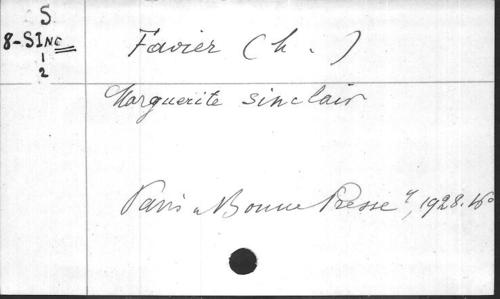 S
8-SINC
1
2
Favier (h.)
Marguerite Sinclair
Paris "Bonne Presse", 1928. 16º